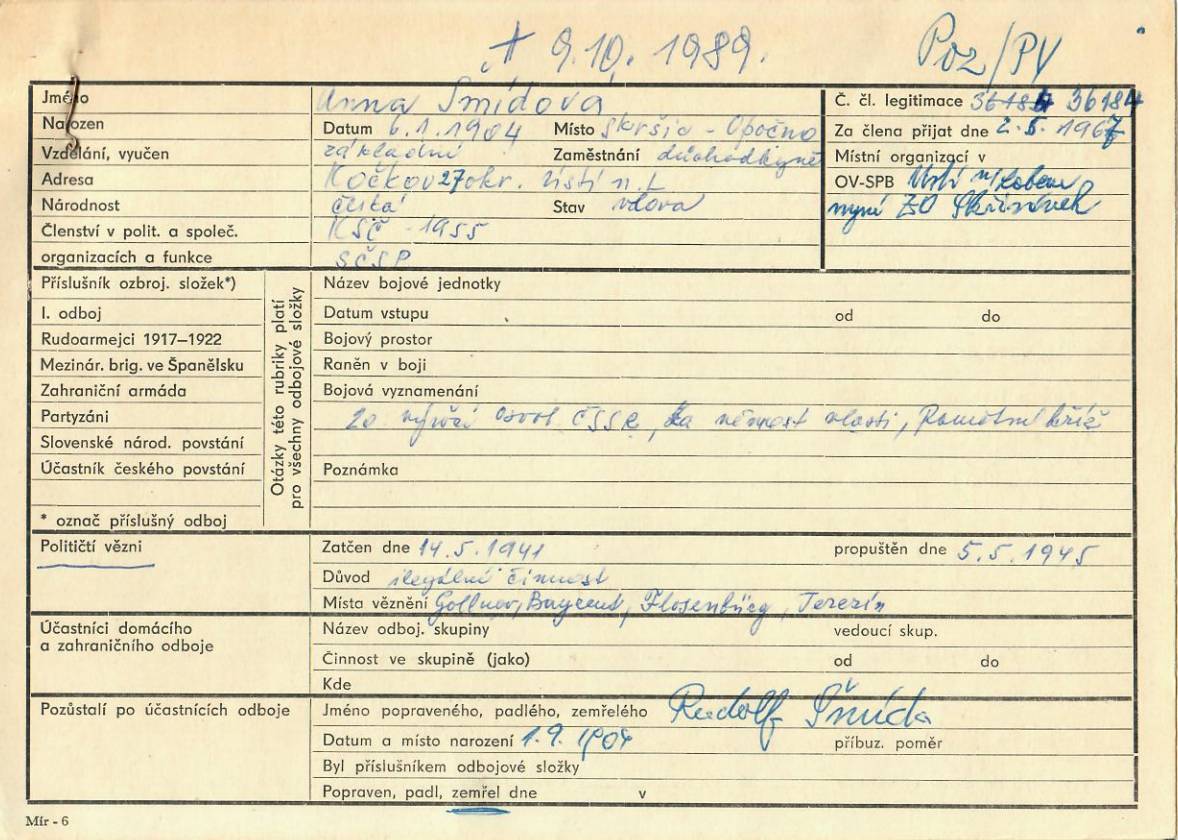 † 9.10. 1989. Poz/PV
Jméno Anna Šmídová Č. čl. legitimace 36184 36184
Narozen Datum 6.1.1904 Místo Skršín - Opočno Za člena přijat dne 2.5.1967
Vzdělání, vyučen základní Zaměstnání důchodkyně Místní organizací v
Adresa Kočkov 27 okr. Ústí n. L OV-SPB Ústí n/Labem
Národnost česká Stav vdova nyní ZO Skřivánek
Členství v polit. a společ. KSČ - 1955
organizacích a funkce SČSP
Příslušník ozbroj. složek*) Název bojové jednotky
I. odboj Datum vstupu od do
Rudoarmejci 1917–1922 Bojový prostor
Mezinár. brig. ve Španělsku Raněn v boji
Zahraniční armáda Bojová vyznamenání
Partyzáni 20 výročí osvob. ČSSR, Za věrnost vlasti, Pamětní kříž
Slovenské národ. povstání
Účastník českého povstání Poznámka
* označ příslušný odboj
Otázky této rubriky platí
pro všechny odbojové složky
Političtí vězni Zatčen dne 14.5.1941 propuštěn dne 5.5.1945
Důvod ilegální činnost
Místa věznění Gollnov, Flosenbürg, Terezín
Účastníci domácího Název odboj. skupiny vedoucí skup.
a zahraničního odboje
Činnost ve skupině (jako) od do
Kde
Pozůstalí po účastnících odboje Jméno popraveného, padlého, zemřelého Rudolf Šmíd
Datum a místo narození 1.9.1904 příbuz. poměr
Byl příslušníkem odbojové složky
Popraven, padl, zemřel dne v
Mír - 6